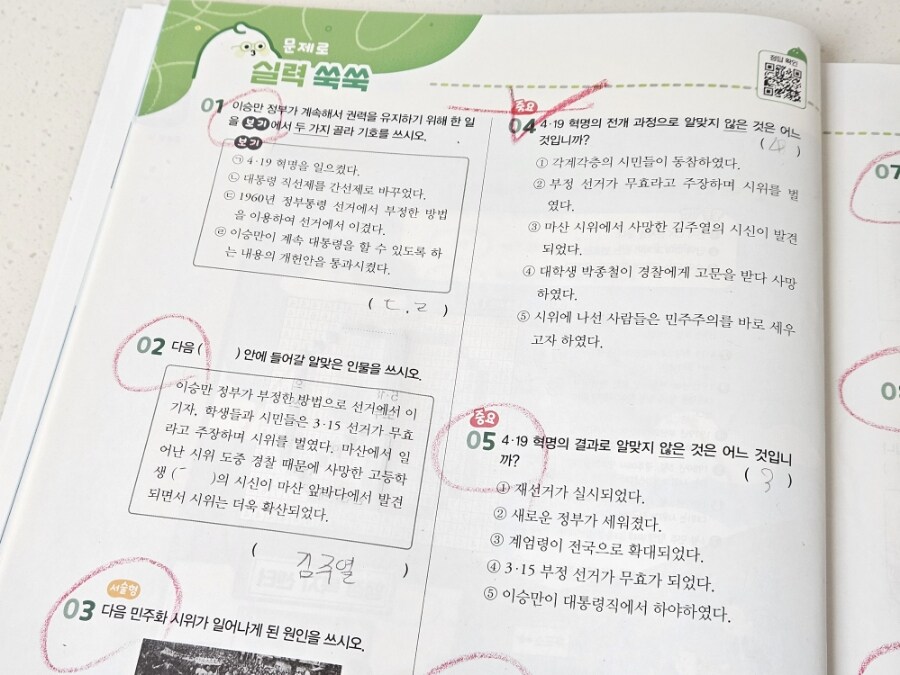 문제로
실력 쑥쑥
정답 확인
01 이승만 정부가 계속해서 권력을 유지하기 위해 한 일
을 보기 에서 두 가지 골라 기호를 쓰시오.
보기
㉠ 4·19 혁명을 일으켰다.
㉡ 대통령 직선제를 간선제로 바꾸었다.
㉢ 1960년 정부통령 선거에서 부정한 방법
을 이용하여 선거에서 이겼다.
㉣ 이승만이 계속 대통령을 할 수 있도록 하
는 내용의 개헌안을 통과시켰다.
( ㄷ, ㄹ )
02 다음 ( ) 안에 들어갈 알맞은 인물을 쓰시오.
이승만 정부가 부정한 방법으로 선거에서 이
기자, 학생들과 시민들은 3·15 선거가 무효
라고 주장하며 시위를 벌였다. 마산에서 일
어난 시위 도중 경찰 때문에 사망한 고등학
생 ( )의 시신이 마산 앞바다에서 발견
되면서 시위는 더욱 확산되었다.
( 김주열 )
서술형
03 다음 민주화 시위가 일어나게 된 원인을 쓰시오.
중요
04 4·19 혁명의 전개 과정으로 알맞지 않은 것은 어느
것입니까? ( 4 )
① 각계각층의 시민들이 동참하였다.
② 부정 선거가 무효라고 주장하며 시위를 벌
였다.
③ 마산 시위에서 사망한 김주열의 시신이 발견
되었다.
④ 대학생 박종철이 경찰에게 고문을 받다 사망
하였다.
⑤ 시위에 나선 사람들은 민주주의를 바로 세우
고자 하였다.
중요
05 4·19 혁명의 결과로 알맞지 않은 것은 어느 것입니
까? ( 3 )
① 재선거가 실시되었다.
② 새로운 정부가 세워졌다.
③ 계엄령이 전국으로 확대되었다.
④ 3·15 부정 선거가 무효가 되었다.
⑤ 이승만이 대통령직에서 하야하였다.
07